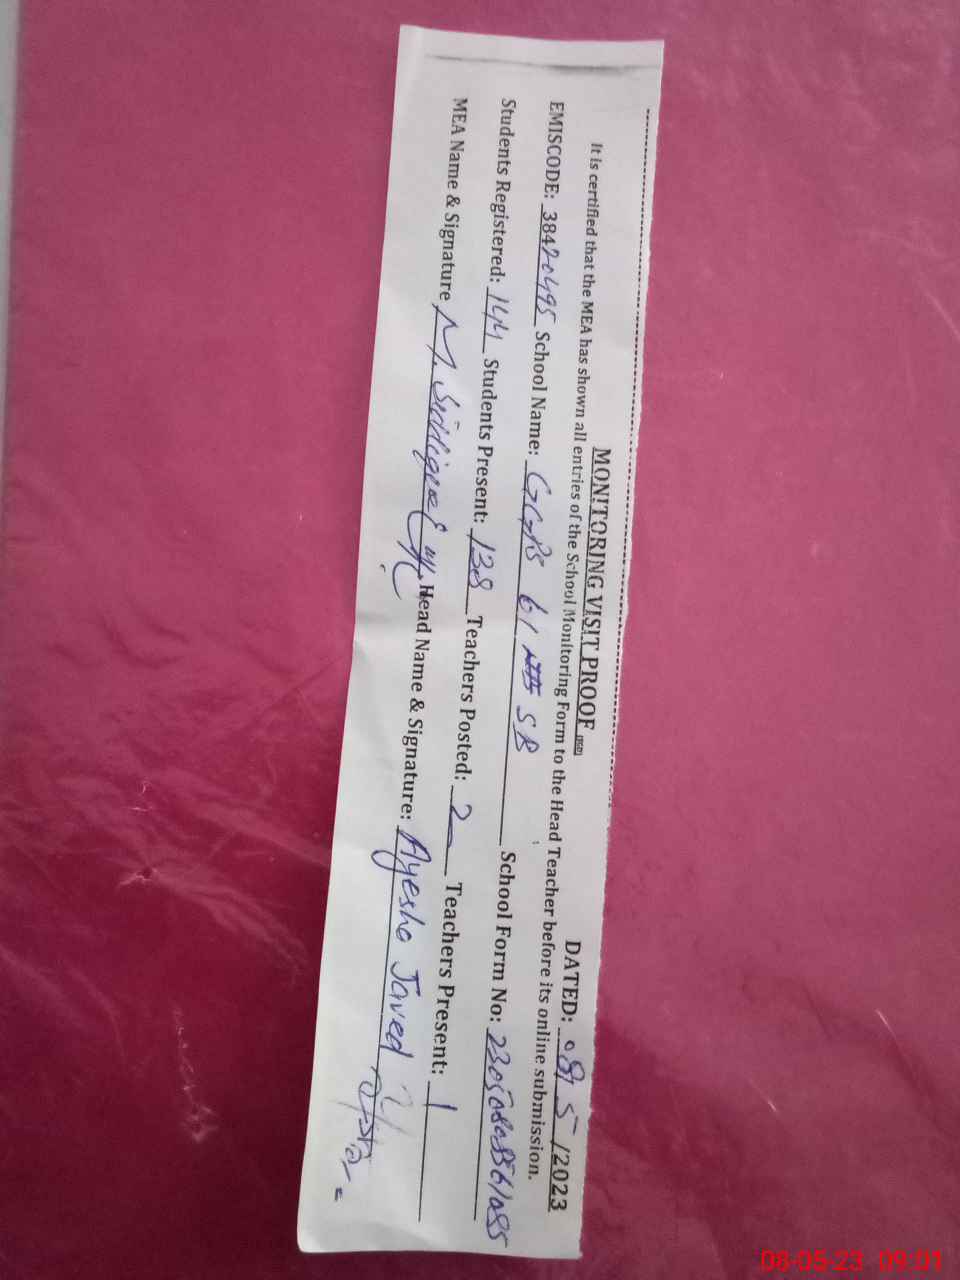 MONITORING VISIT PROOF
DATED: 08/ 5 /2023
It is certified that the MEA has shown all entries of the School Monitoring Form to the Head Teacher before its online submission.
EMISCODE: 38420495 School Name: GGPS 61 SB School Form No:
Students Registered: 144 Students Present: 138 Teachers Posted: 2 Teachers Present: 1
MEA Name & Signature M. Siddique Head Name & Signature: Ayesha Javed
08-05-23 09:01